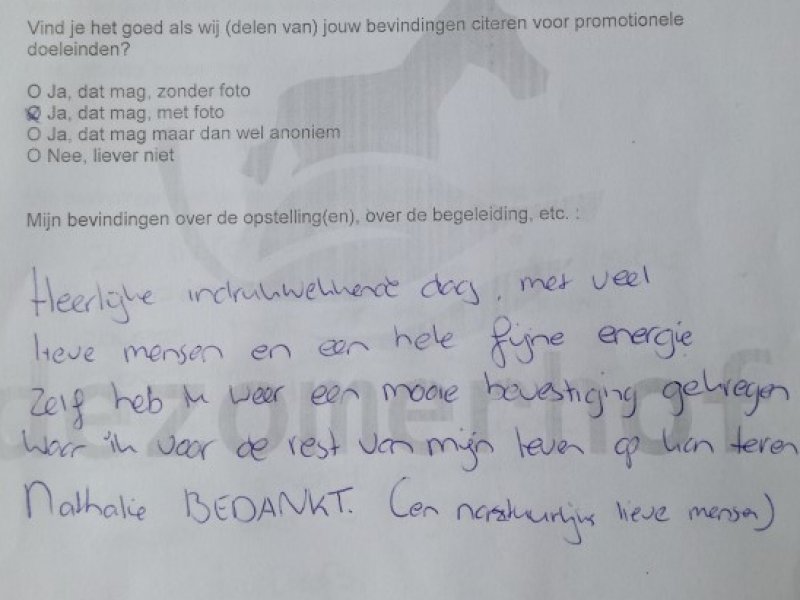 Vind je het goed als wij (delen van) jouw bevindingen citeren voor promotionele
doeleinden?
O Ja, dat mag, zonder foto
O Ja, dat mag, met foto
O Ja, dat mag maar dan wel anoniem
O Nee, liever niet
Mijn bevindingen over de opstelling(en), over de begeleiding, etc. :
Heerlijke indrukwekkende dag, met veel
lieve mensen en een hele fijne energie
dezomerhof
Zelf heb ik weer een mooie bevestiging gekregen
Waar ik voor de rest van mijn leven op kan teren
Nathalie BEDANKT. (en natuurlijk lieve mensen)